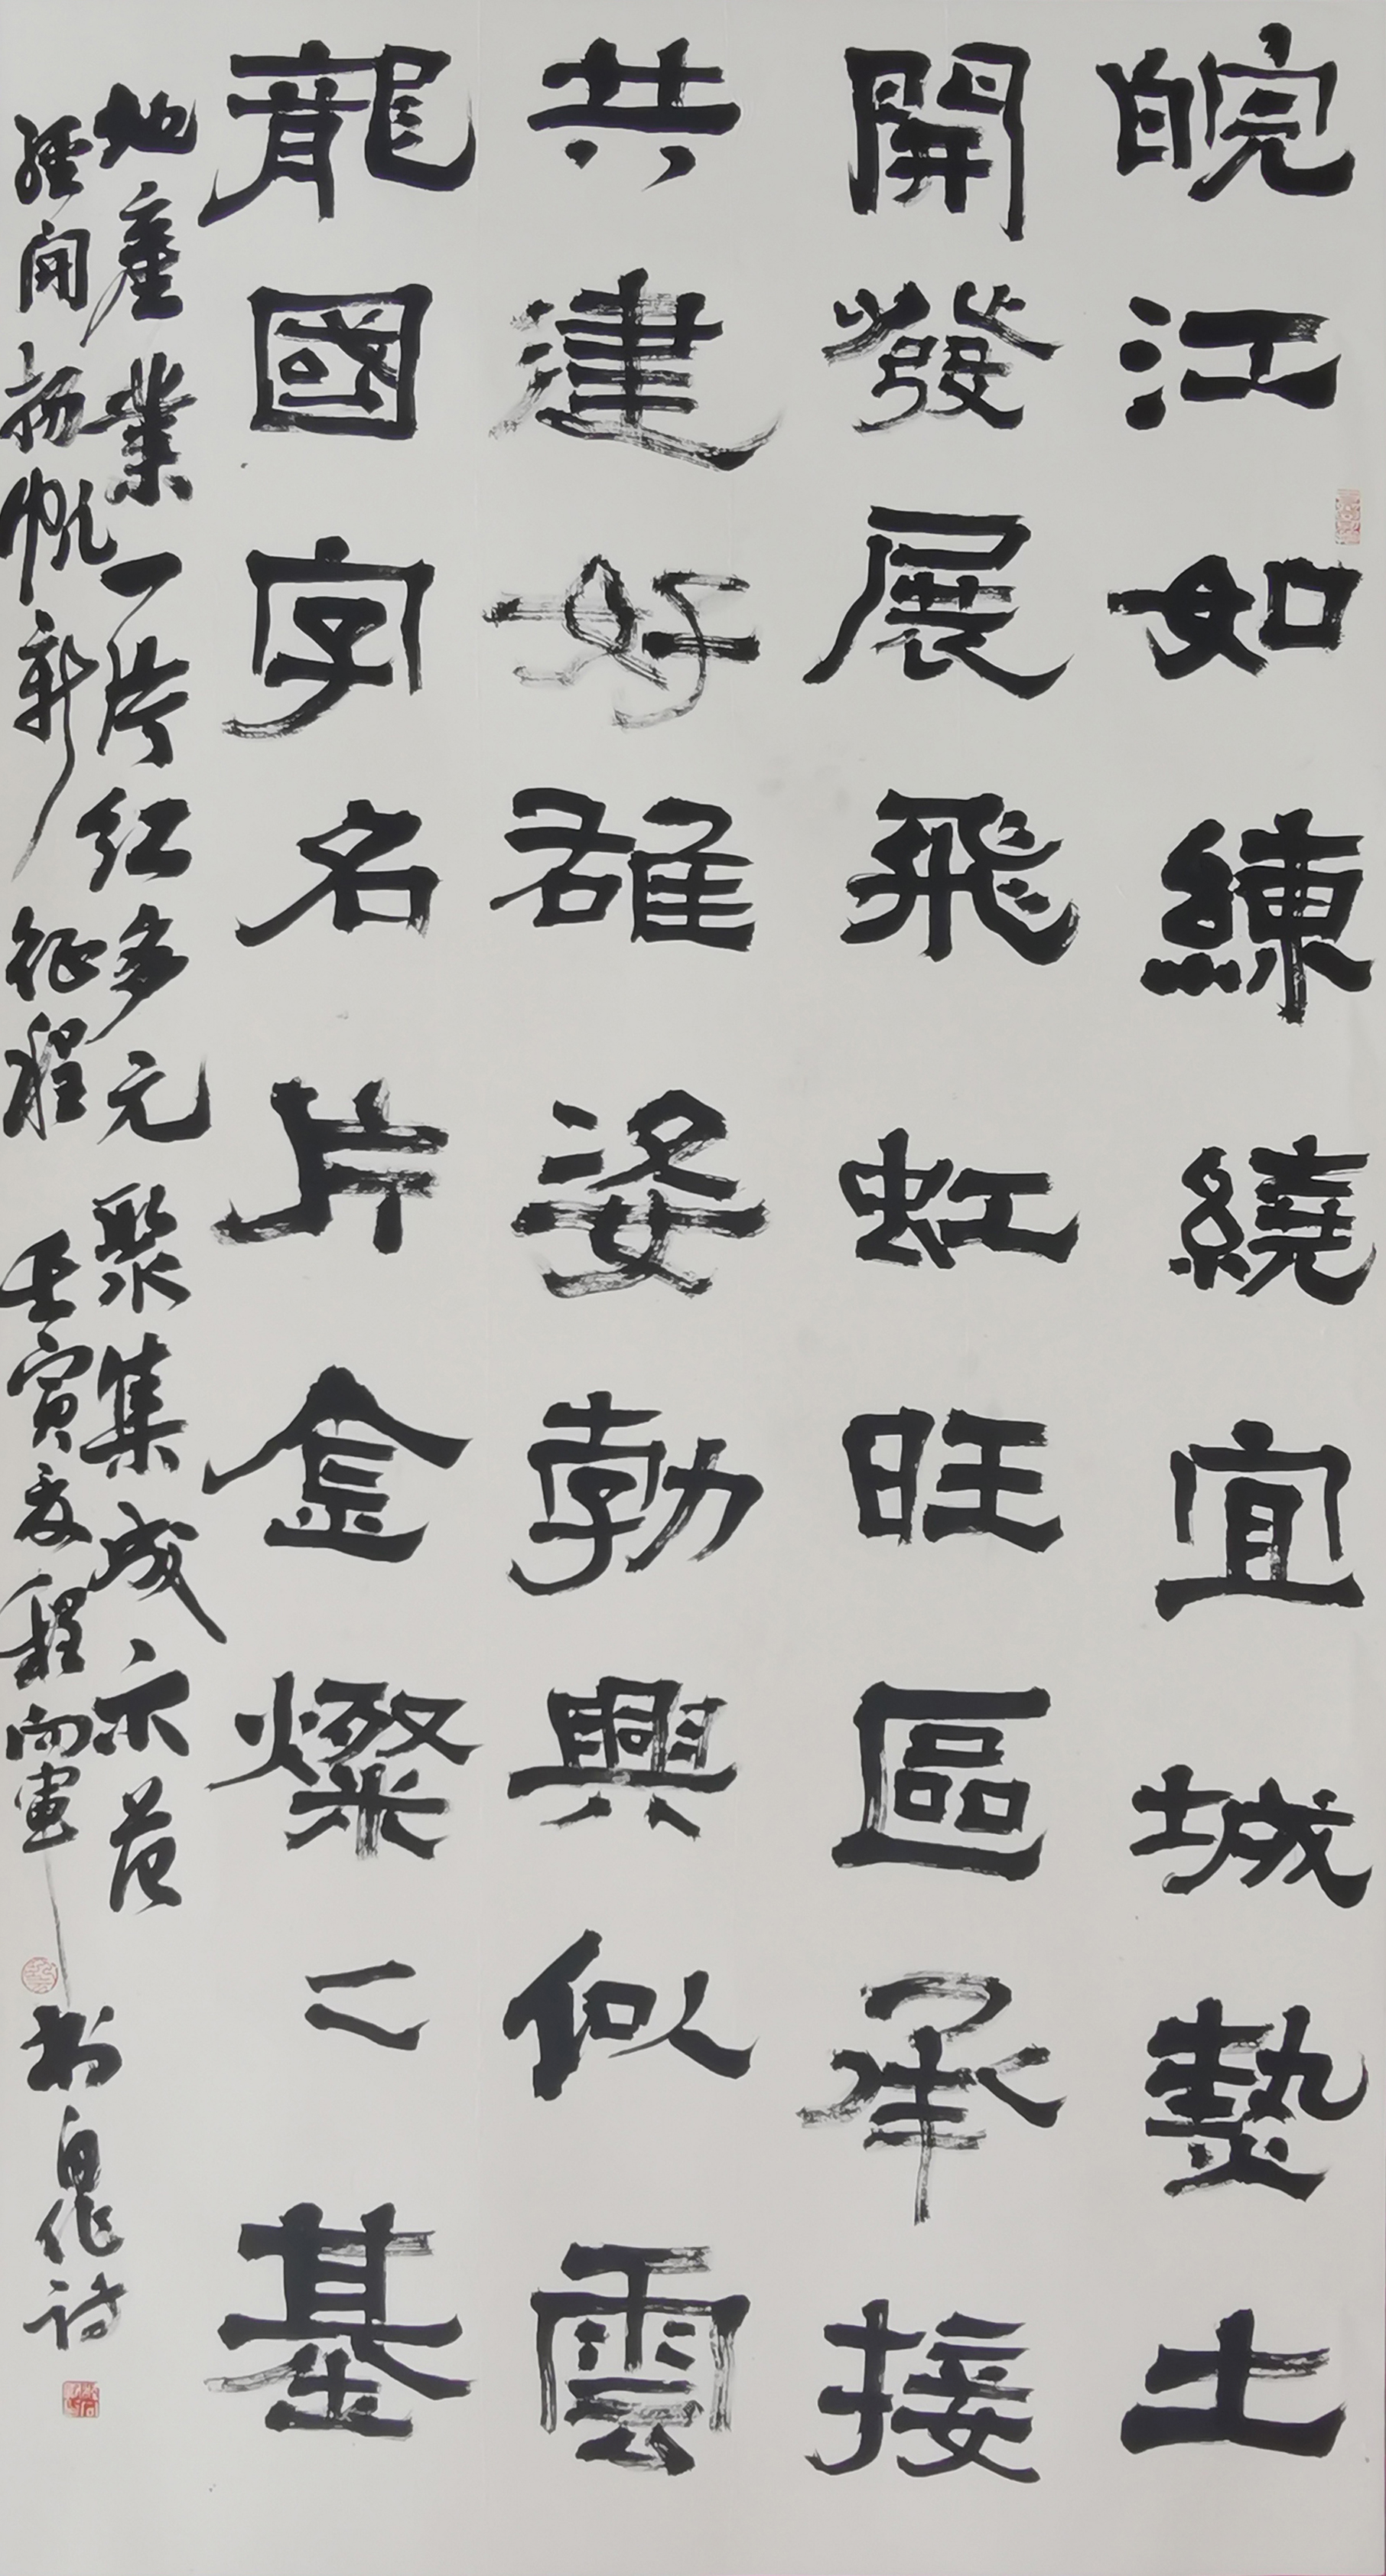 皖江如練繞宜城熱土
開發展飛虹旺區承接
共建好雄姿勃興似雲
龍國字名片金燦二基
地産業一片红多元聚集成示范
經開扬帆新征程 壬寅夏程向軍书自作诗